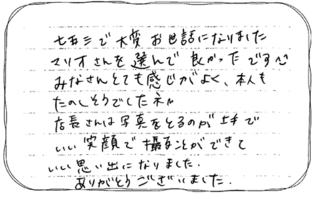 七五三で大変お世話になりました
マリオさんを選んで良かったです
みなさんとても感じがよく、本人も
たのしそうでしたネ
店長さんは写真をとるのが上手で
いい笑顔で撮ることができて
いい思い出になりました.
ありがとうございました.